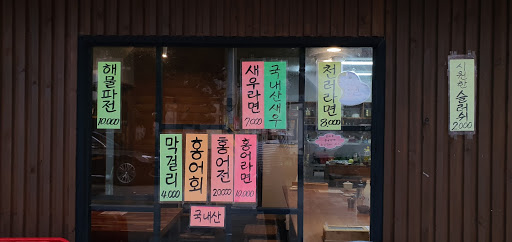 해물파전
10,000
새우라면
7,000
국내산새우
천러라면
8,000
시원한 슬러쉬
2,000
막걸리
4,000
홍어회
홍어전
20,000
홍어라면
10,000
국내산